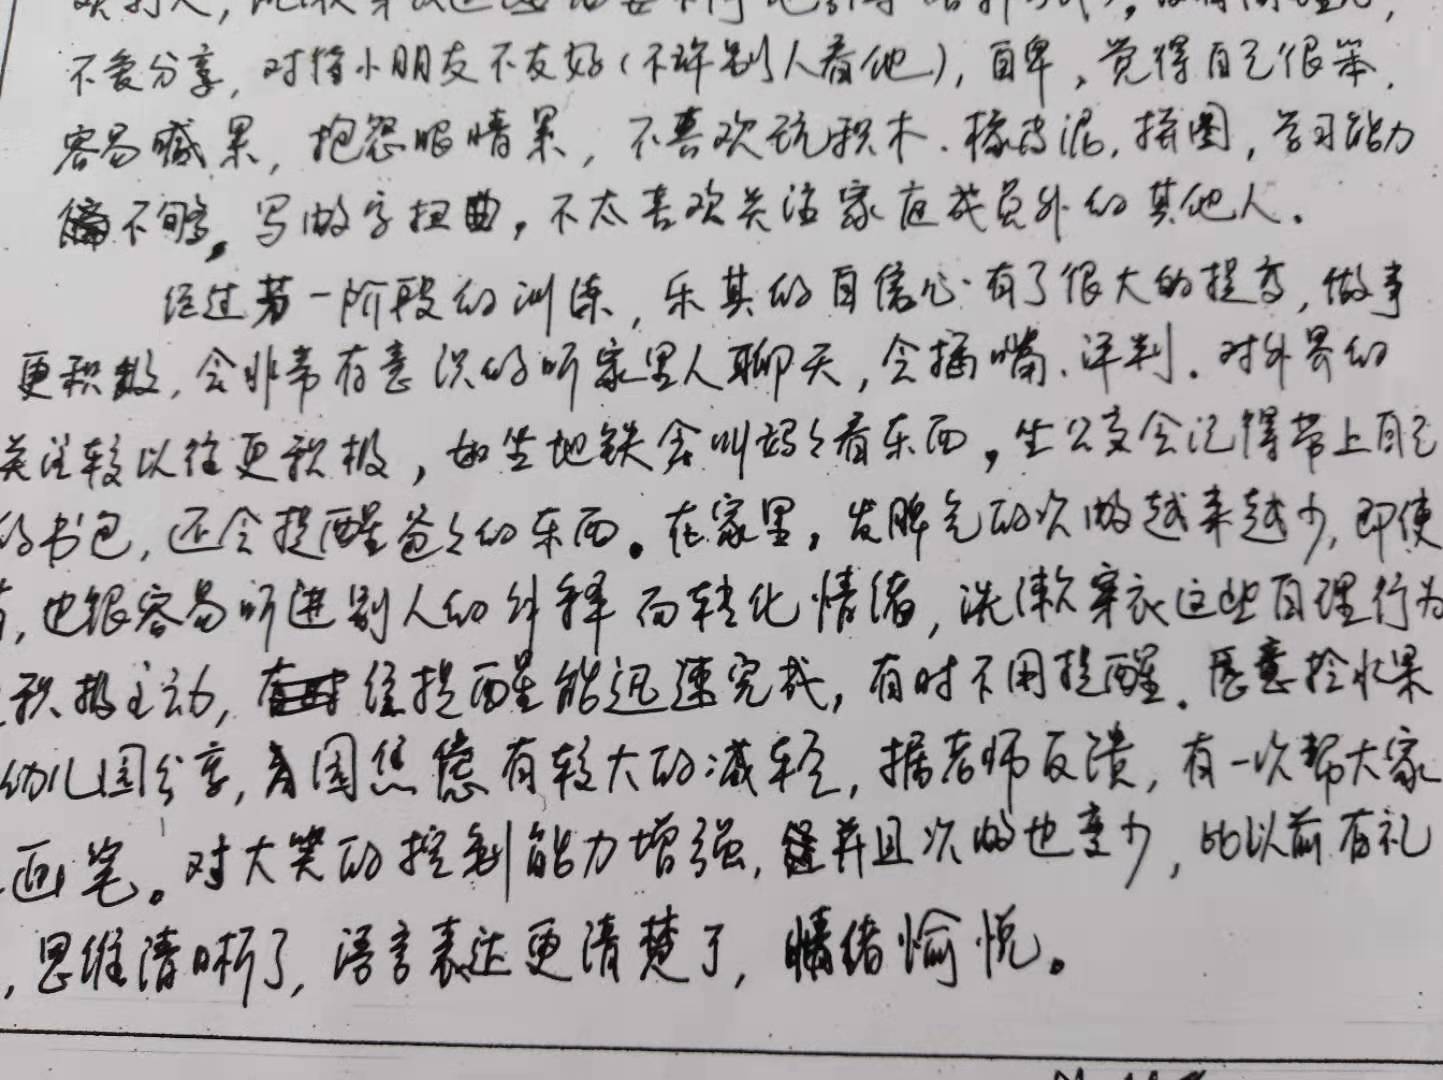 不爱分享，对待小朋友不友好（不许别人看他），自卑，觉得自己很笨，
容易喊累，抱怨眼睛累，不喜欢玩积木、橡皮泥，拼图，学习能力
不够，写的字扭曲，不太喜欢关注家庭成员外的其他人。
经过第一阶段的训练，乐其的自信心有了很大的提高，做事
更积极，会非常有意识的听家里人聊天，会插嘴、评判。对外界的
关注较以往更积极，如坐地铁会叫妈妈看东西，坐公交会记得带上自己
的书包，还会提醒爸爸的东西。在家里，发脾气的次数越来越少，即使
有，也很容易听进别人的解释而转化情绪，洗漱穿衣这些自理行为
积极主动，经提醒能迅速完成，有时不用提醒。愿意拎水果
幼儿园分享，入园焦虑有较大的减轻，据老师反馈，有一次帮大家
画笔。对大笑的控制能力增强，并且次数也变少，比以前有礼
，思维清晰了，语言表达更清楚了，情绪愉悦。